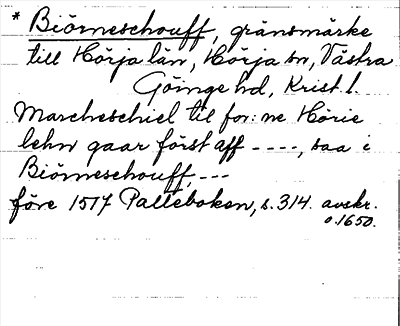 * Biörneschouff, gränsmärke
till Hörja län, Hörja sn, Västra
Göinge hd, Krist. l.
Marcheschiel til for:ne Hörie
lehn gaar först aff ----, saa i
Biörneschouff, ---
före 1517 Palleboken, s. 314. avskr.
o. 1650.